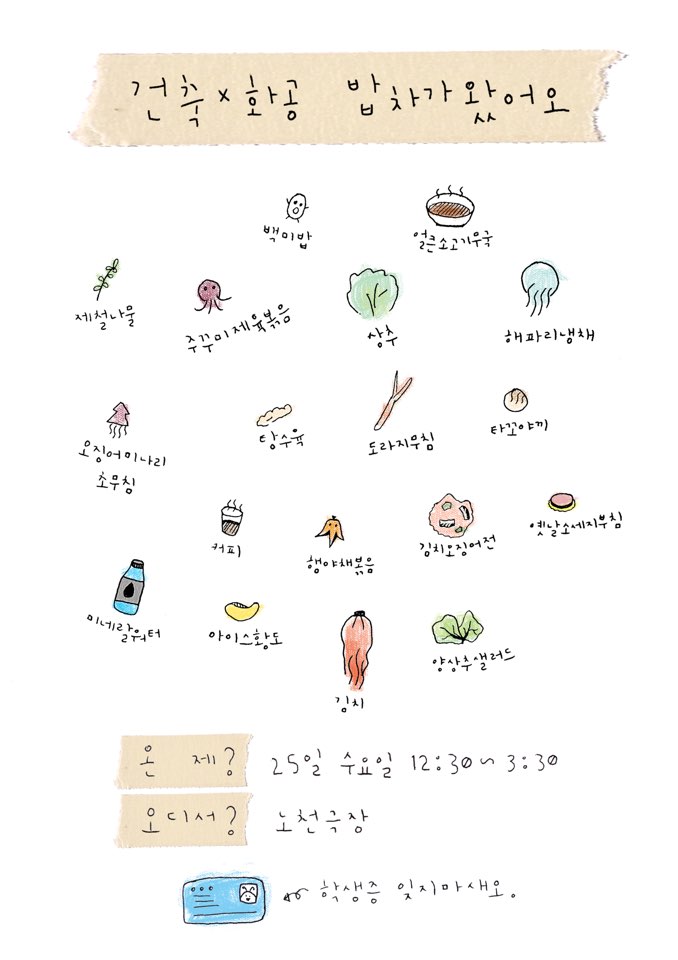 건축 x 화공 밥차가 왔어오
백미밥 얼큰소고기무국
제철나물 쭈꾸미제육볶음 상추 해파리냉채
오징어미나리
초무침
탕수육 도라지무침 타꼬야끼
커피 햄야채볶음 김치오징어전 옛날소세지부침
미네랄워터 아이스황도 김치 양상추샐러드
온 제? 25일 수요일 12:30~3:30
오디서? 노천극장
학생증 잊지마새오.